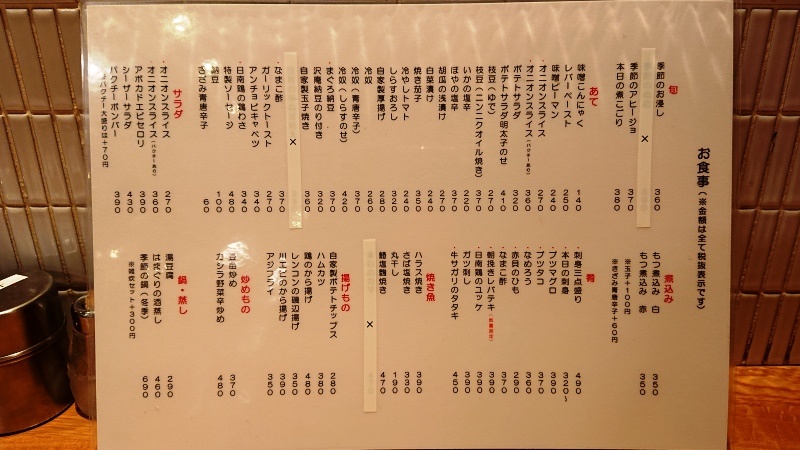 お食事（※金額は全て税抜表示です）
旬
季節のお浸し 360
×
季節のアヒージョ 370
本日の煮こごり 380
あて
味噌こんにゃく 140
・レバーペースト 250
味噌ピーマン 240
・オニオンスライス 270
・オニオンスライス 360
ポテトサラダ 320
ポテトサラダ明太子のせ 410
枝豆（ゆで） 270
枝豆（ニンニクオイル焼き） 370
いかの塩辛 220
ほやの塩辛 370
胡瓜の浅漬け 270
白菜漬け 240
焼き茄子 350
冷やしトマト 250
しらすおろし 320
自家製厚揚げ 280
冷奴 260
冷奴（青唐辛子） 370
冷奴（しらすのせ） 420
・まぐろ納豆 370
沢庵納豆のり付き 320
自家製玉子焼き 360
×
・なまこ酢 370
ガーリックトースト 270
アンチョビキャベツ 340
・日南鶏の鶏わさ 340
特製ソーセージ 480
納豆 100
きざみ青唐辛子 60
サラダ
・オニオンスライス 270
・オニオンスライス 360
アボカドエビセロリ 390
シーザーサラダ 430
パクチーボンバー 390
パクチー大盛りは+70円
煮込み
もつ煮込み 白 350
もつ煮込み 赤 350
※玉子+100円
※きざみ青唐辛子+60円
肴
・刺身三点盛り 490
・本日の刺身 320〜
・ブツマグロ 390
・ブツタコ 370
・なめろう 360
・赤貝のひも 290
・なまこ酢 370
・朝挽きレバテキ 390
・日南鶏のユッケ 390
・ガツ刺し 390
・牛サガリのタタキ 450
焼き魚
ハラス焼き 390
さば塩焼き 330
丸干し 190
鯖塩麹焼き 470
×
揚げもの
自家製ポテトチップス 280
ハムカツ 380
鶏のから揚げ 480
レンコンの磯辺揚げ 350
川エビのから揚げ 390
アジフライ 350
炒めもの
豆苗炒め 370
ガシラ野菜辛炒め 480
鍋・蒸し
湯豆腐 290
はまぐりの酒蒸し 460
季節の鍋（冬季） 690
※雑炊セット+300円